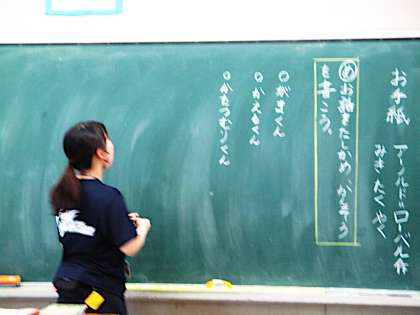 お手紙
アーノルド＝ローベル作
みき たくやく
めお話をたしかめ、かんそう
を書こう。
○がまくん
○かえるくん
○かたつむりくん